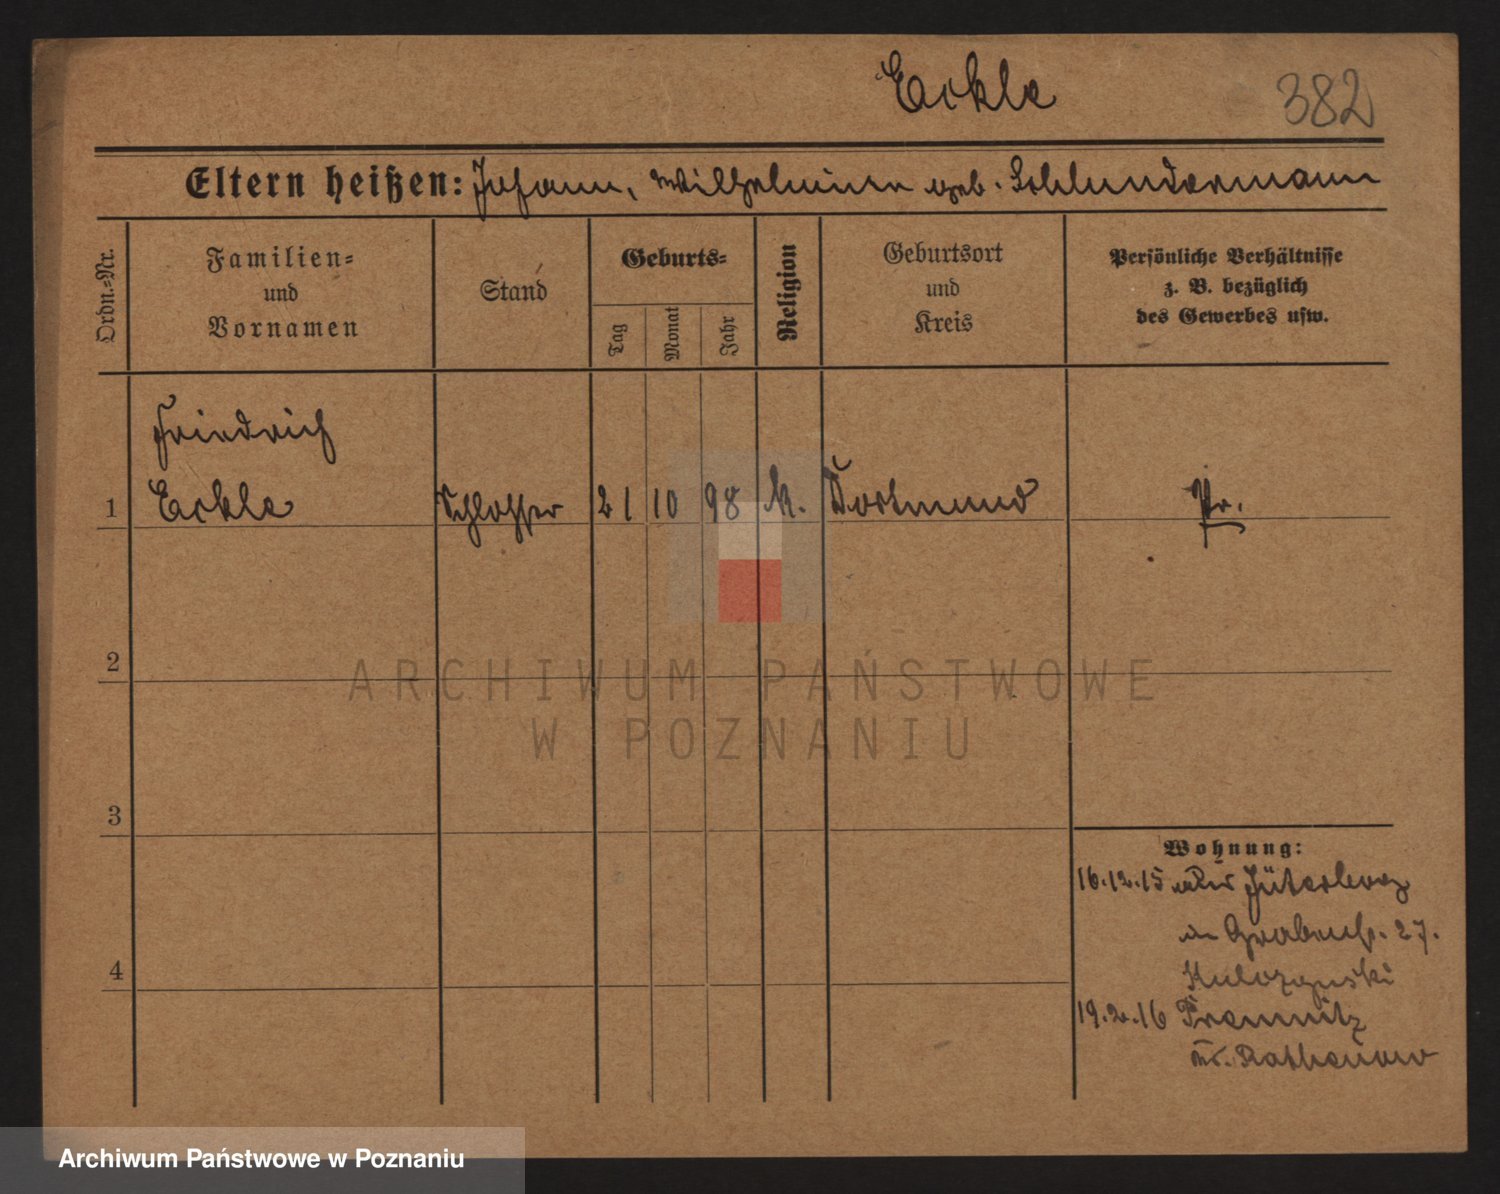 Eckle 382
Eltern heißen: Johann, Wilhelmine geb. Schlundermann
Ordn.=Nr.
Familien=
und
Vornamen
Stand
Geburts=
Tag
Monat
Jahr
Religion
Geburtsort
und
Kreis
Persönliche Verhältnisse
z. B. bezüglich
des Gewerbes usw.
Friedrich
1 Eckle Schlosser 21 10 98 k. Dortmund Pr.
2
ARCHIWUM PAŃSTWOWE
W POZNANIU
3
Wohnung:
16.12.15 aus Jüterbog
in Grabenst. 27.
4
19.2.16 Premnitz
Kr. Rathenow
Archiwum Państwowe w Poznaniu